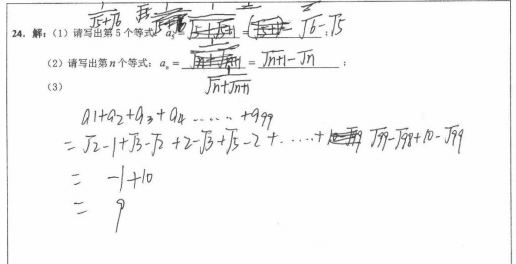 24. 解:(1)请写出第5个等式: a₅ = 1/(√5+√6) = √6-√5 ;
(2)请写出第n个等式: aₙ = 1/(√n+√n+1) = √n+1-√n ;
(3)
a1+a2+a3+a4……+a99
=√2-1+√3-√2+2-√3+√5-2+……+√99-√98+10-√99
= -1+10
= 9